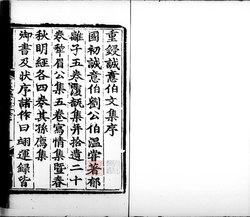 重鋟誠意伯文集序
國初誠意伯劉公伯溫嘗著郁
離子五卷覆瓿集并拾遺二十
卷犁眉公集五卷寫情集暨春
秋明經各四卷其孫廌集
御書及狀序諸作曰翊運錄皆